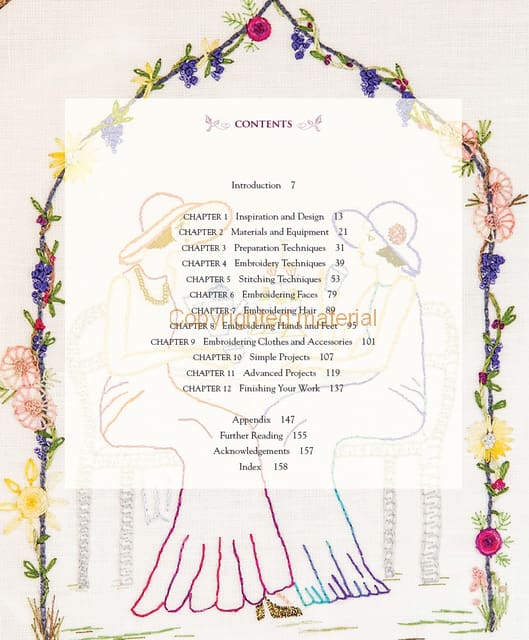 CONTENTS
Introduction 7
CHAPTER 1 Inspiration and Design 13
CHAPTER 2 Materials and Equipment 21
CHAPTER 3 Preparation Techniques 31
CHAPTER 4 Embroidery Techniques 39
CHAPTER 5 Stitching Techniques 53
CHAPTER 6 Embroidering Faces 79
CHAPTER 7 Embroidering Hair 89
Copyrighted material
CHAPTER 8 Embroidering Hands and Feet 95
CHAPTER 9 Embroidering Clothes and Accessories 101
CHAPTER 10 Simple Projects 107
CHAPTER 11 Advanced Projects 119
CHAPTER 12 Finishing Your Work 137
Appendix 147
Further Reading 155
Acknowledgements 157
Index 158